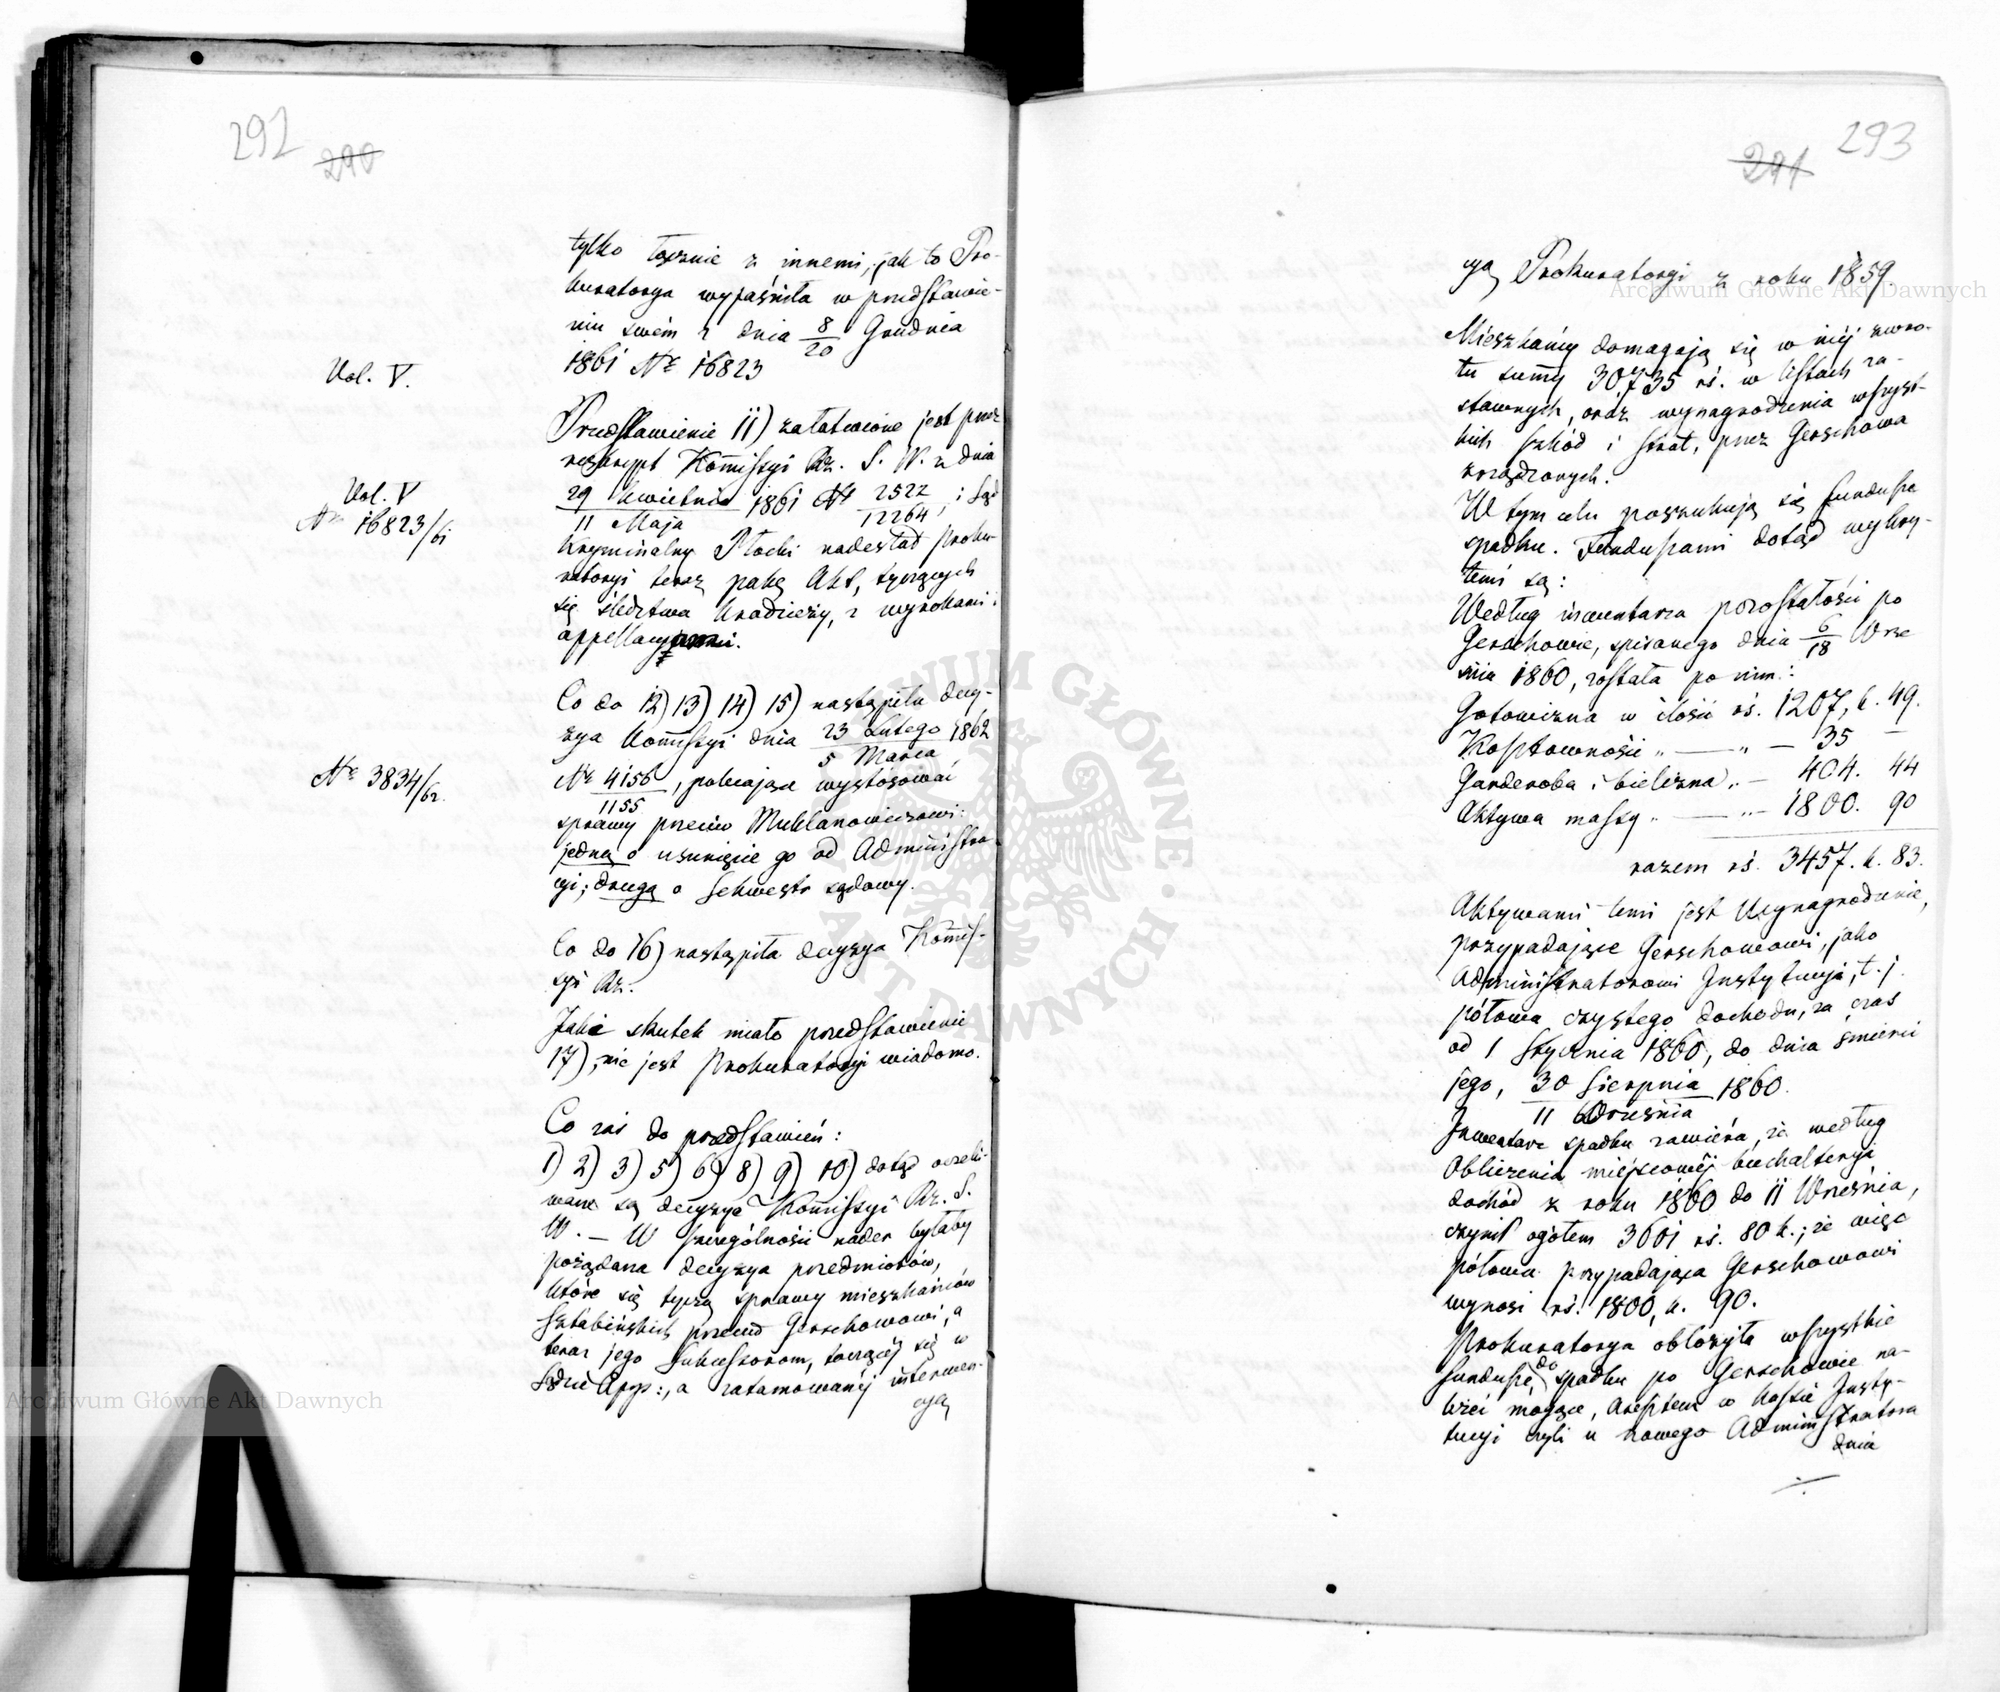 292
290
tylko łącznie z innemi, jak to Pro-
kuratorya wyjaśniła w przedstawie-
niu swém z dnia 8/20 Grudnia
1861 Nr 16823
Vol. V.
Przedstawienie 11) załatwione jest przez
reskrypt Kommissyi Rz. S. W. z dnia
29 Kwietnia / 11 Maja 1861 Nr 2522/12264, i Sąd
Vol. V
Nr 16823/61
Kryminalny Płocki nadesłał Proku-
ratoryi teraz pakę Akt, tyczących
się śledztwa kradzieży, z wyrokami i
appellacyami.
Co do 12) 13) 14) 15) nastąpiła decy-
zya Kommissyi dnia 23 Lutego / 5 Marca 1862
Nr 4156/1155, polecająca wystósować
Nr 3834/62.
sprawy przeciw Muklanowiczowi:
jedną o usunięcie go od Administra-
cyi; drugą o Sekwestr sądowy.
Co do 16) nastąpiła decyzya Kommis-
syi Rz.
Jakie skutek miało przedstawienie
17), nie jest Prokuratoryi wiadomo.
Co zaś do przedstawień:
1) 2) 3) 5) 6) 8) 9) 10) dotąd oczeki-
wane są decyzye Kommissyi Rz. S.
W. — W szczególności nader byłaby
pożądana decyzya przedmiotów,
które się tyczą sprawy mieszkańców
Sztabińskich przeciw Gerschowowi, a
teraz jego Sukcessorom, toczącéj się w
Sądzie App:, a zatamowanéj interwen-
cyą
293
291
cyą Prokuratoryi z roku 1859.
Mieszkańcy domagają się w niéj zwro-
tu summy 30735 rś. w listach za-
stawnych, oraz wynagrodzenia wszyst-
kich szkód i strat, przez Gerschowa
zrządzonych.
W tym celu poszukują się fundusze
spadku. Funduszami dotąd wykry-
temi są:
Według inwentarza pozostałości po
Gerschowie, spisanego dnia 6/18 Wrze
śnia 1860, została po nim:
Gotowizna w ilości rś. 1207, k. 49.
Kosztowności „ — „ — 35 —
Garderoba i bielizna „ — 404. 44
Aktywa massy „ — „ — 1800. 90
razem rś. 3457. k. 83.
Aktywami temi jest Wynagrodzenie,
przypadające Gerschowowi, jako
Administratorowi Instytucyi, t. j.
połowa czystego dochodu, za czas
od 1 Stycznia 1860, do dnia śmierci
jego, 30 Sierpnia / 11 Września 1860.
Inwentarz spadku zawiéra, że według
Obliczenia miejscowéj buchalteryi
dochód z roku 1860 do 11 Września,
czynił ogółem 3601 rś. 80 k.; że więc
połowa przypadająca Gerschowowi
wynosi rś. 1800, k. 90.
Prokuratorya obłożyła wszystkie
fundusze, do spadku po Gerschowie na-
leżéć mogące, Aresztem w kassie Insty-
tucyi czyli u nowego Administratora
dnia
Archiwum Główne Akt Dawnych
Archiwum Główne Akt Dawnych
ARCHIWUM GŁÓWNE AKT DAWNYCH